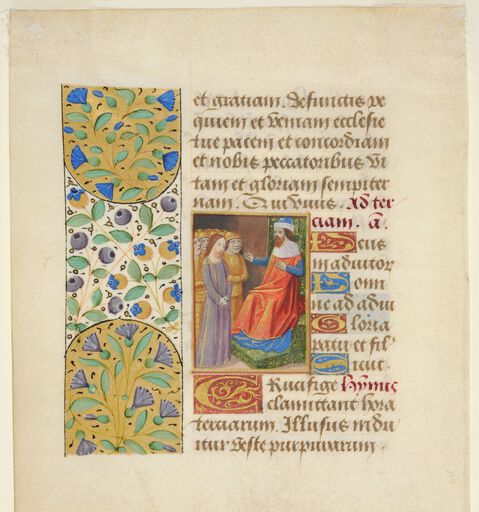 et gratiam. defunctis re
quiem et veniam ecclesie
tue pacem et concordiam
et nobis peccatoribus vi
tam et gloriam sempiter
nam. Qui vivis. ad ter
ciam. a
Deus
in adiutor
Domi
ne ad adiu
Gloria
patri et fil
Sicut.
CRucifige hymnus
clamitant hora
terciarum. Illusus indu
itur veste purpurarum.